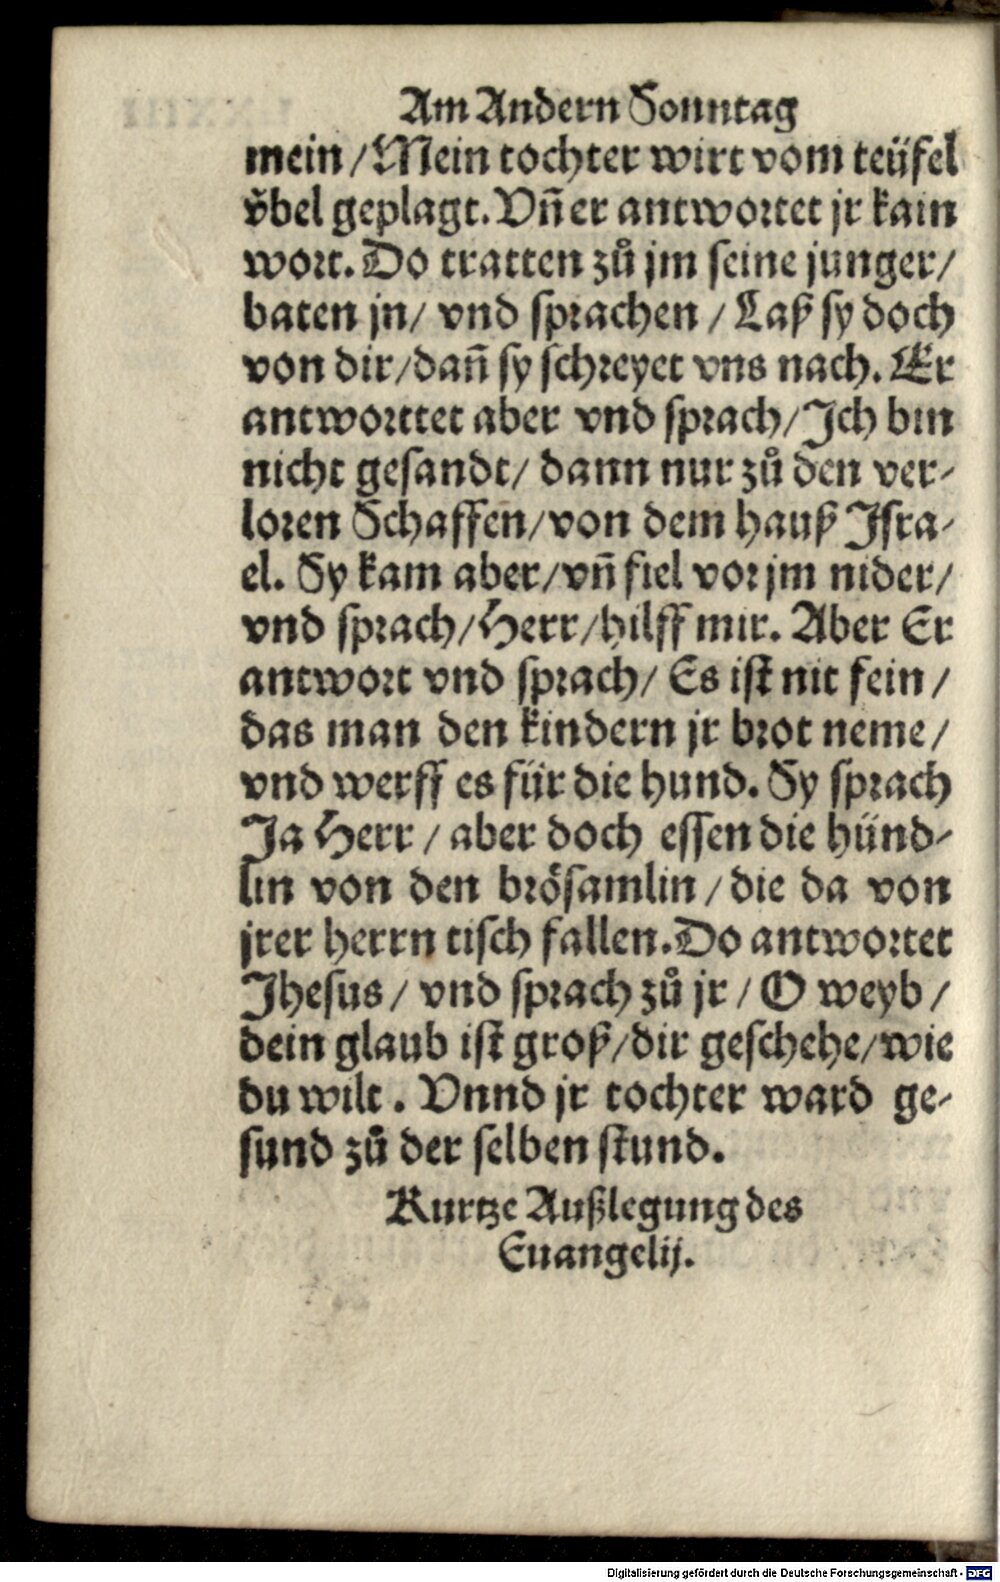 Am Andern Sonntag
mein / Mein tochter wirt vom teüfel
v̈bel geplagt. Vñ er antwortet jr kain
wort. Do tratten zů jm seine junger /
baten jn / vnd sprachen / Laß sy doch
von dir / dañ sy schreyet vns nach. Er
antworttet aber vnd sprach / Ich bin
nicht gesandt / dann nur zů den ver-
loren Schaffen / von dem hauß Isra-
el. Sy kam aber / vñ fiel vor jm nider /
vnd sprach / Herr / hilff mir. Aber Er
antwort vnd sprach / Es ist nit fein /
das man den kindern jr brot neme /
vnd werff es für die hund. Sy sprach
Ja Herr / aber doch essen die hünd-
lin von den brösamlin / die da von
jrer herrn tisch fallen. Do antwortet
Jhesus / vnd sprach zů jr / O weyb /
dein glaub ist groß / dir geschehe / wie
du wilt. Vnnd jr tochter ward ge-
sund zů der selben stund.
Kurtze Außlegung des
Euangelij.
Digitalisierung gefördert durch die Deutsche Forschungsgemeinschaft - DFG